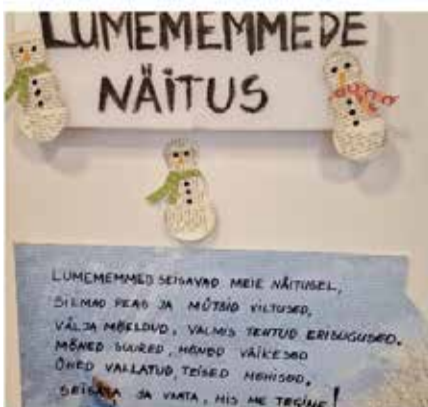 LUMEMEMMEDE
NÄITUS
LUMEMEMMED SEISAVAD MEIE NÄITUSEL,
SILMAD PEAS JA MÜTSID VILTUSED,
VÄLJA MÕELDUD, VALMIS TEHTUD ERISUGUSED.
MÕNED SUURED, MÕNED VÄIKESED
ÜHED VALLATUD, TEISED MEHISED.
SEISATA JA VAATA, MIS ME TEGIME!